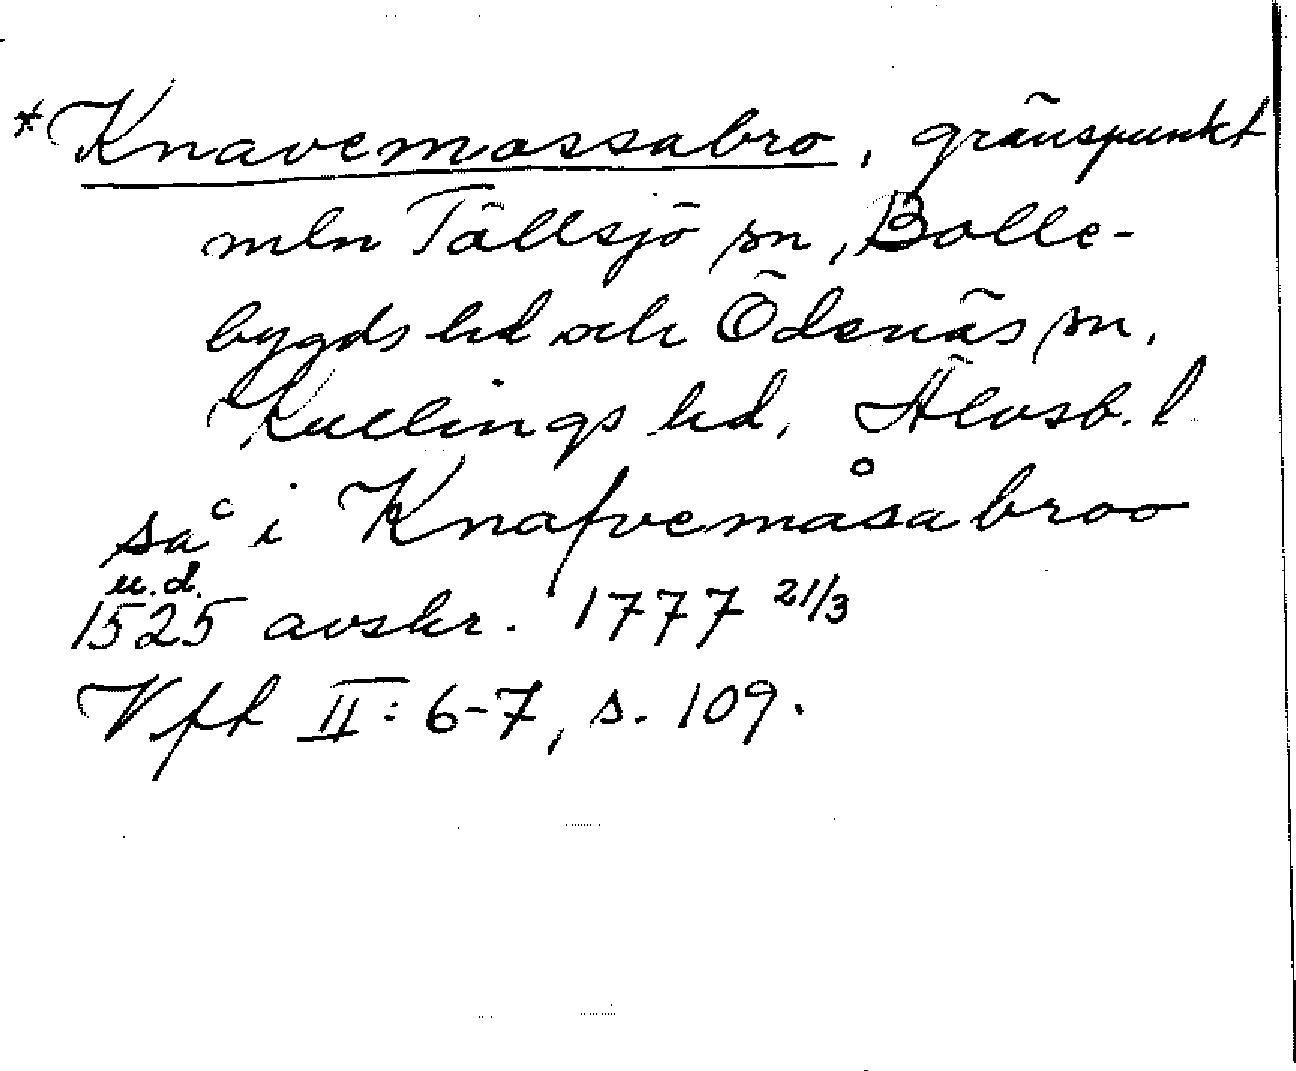 *Knavemossabro, gränspunkt
mln Tällsjö sn, Bolle-
bygds hd och Ödenäs sn,
Kullings hd, Älvsb. l
så i Knafvemåsabroo
u.d.
1525 avskr. 1777 21/3
Vfk II: 6-7, s. 109.